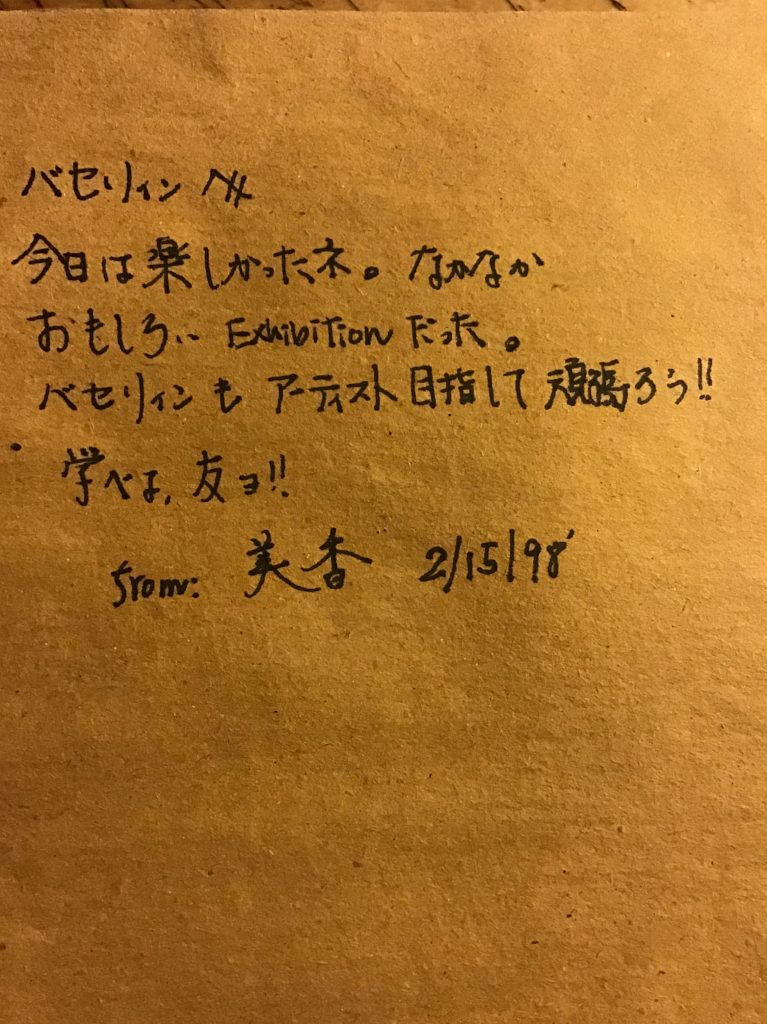 バセリィン へ
今日は楽しかったネ。なかなか
おもしろい Exhibition だった。
バセリィンも アーティスト目指して 頑張ろう!!
学べよ, 友ヨ!!
from: 美香 2/15/98'